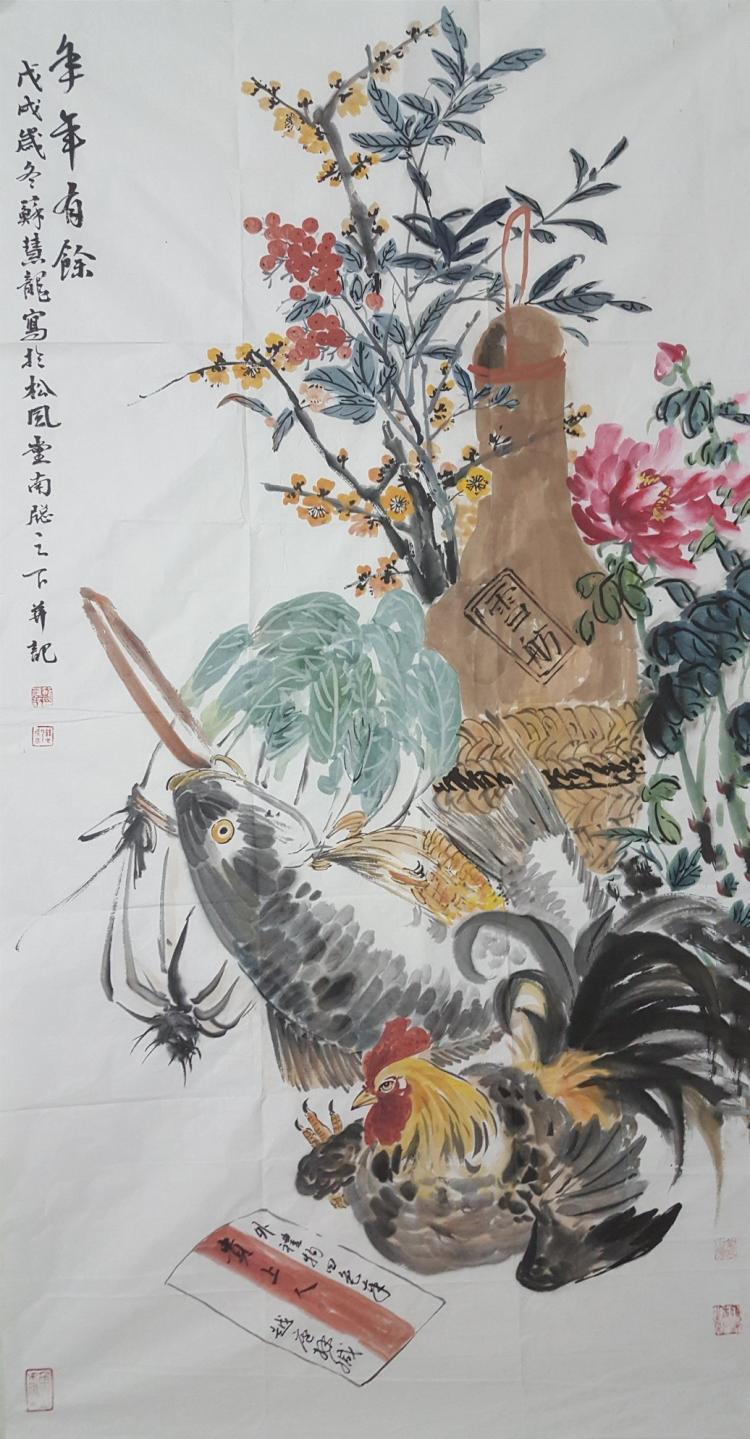 年年有餘
戊戌歲冬蘇慧龍寫於松風堂南窗之下并記
雪舫
外禮物四色奉
貴上人